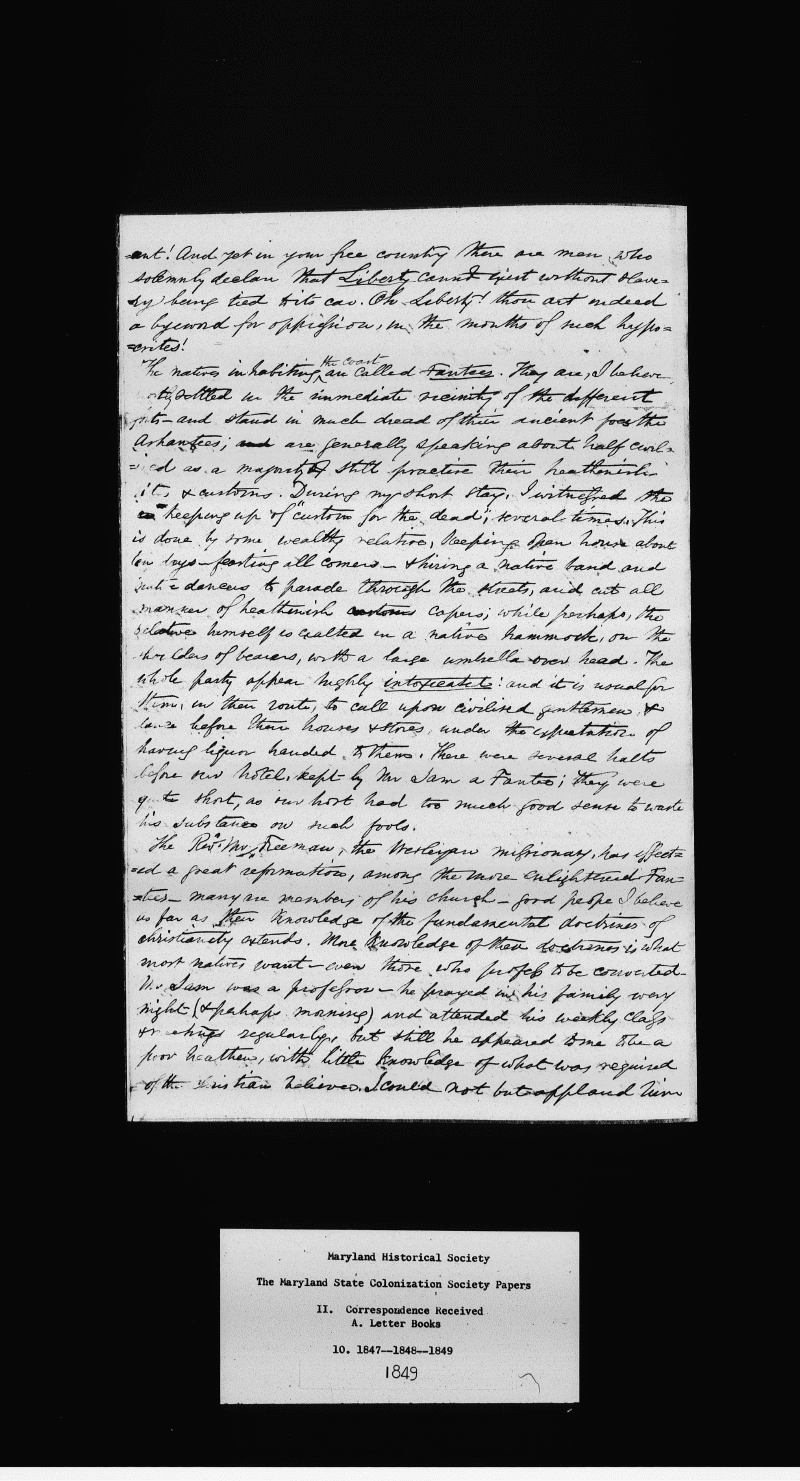 =ent! And yet in your free country there are men who
solemnly declare that Liberty cannot exist without Slave=
ry being tied to its car. Oh Liberty! thou art indeed
a byeword for oppression, in the mouths of such hypo=
=crites!
The natives inhabiting the coast are called Fantees. They are, I believe
settled in the immediate vicinity of the different
and stand in much dread of their ancient foes the
Ashantees; and are generally speaking about half civil=
=ized as a majority of still practice their heathenish
rites & customs. During my short stay, I witnessed the
keeping up of "custom for the dead", several times. This
is done by some wealthy relative, keeping open house about
ten days—feasting all comers—& hiring a native band and
native dancers to parade through the streets, and cut all
manner of heathenish customs capers; while perhaps, the
relative himself is exalted in a native hammock, on the
shoulders of bearers, with a large umbrella over head. The
whole party appear highly intoxicated! and it is usual for
them, in their route, to call upon civilised gentlemen &
dance before their houses & stores, under the expectation of
having liquor handed to them. There were several halts
before our hotel, kept by Mr Sam a Fantee; they were
quite short, as our host had too much good sense to waste
his substance on such fools.
The Revd. Mr Freeman, the Wesleyan missionary, has effect=
=ed a great reformation, among the more enlightened Fan=
=tees—many are members of his church—good people I believe
as far as their knowledge of the fundamental doctrines of
christianity extends. More knowledge of these doctrines is what
most natives want—even those who profess to be converted—
Mr Sam was a professor—he prayed in his family every
night (& perhaps morning) and attended his weekly class
regularly, but still he appeared to me to be a
poor heathen, with little knowledge of what was required
of the Christian believer. I could not but applaud him
Maryland Historical Society
The Maryland State Colonization Society Papers
II. Correspondence Received
A. Letter Books
10. 1847--1848--1849
1849